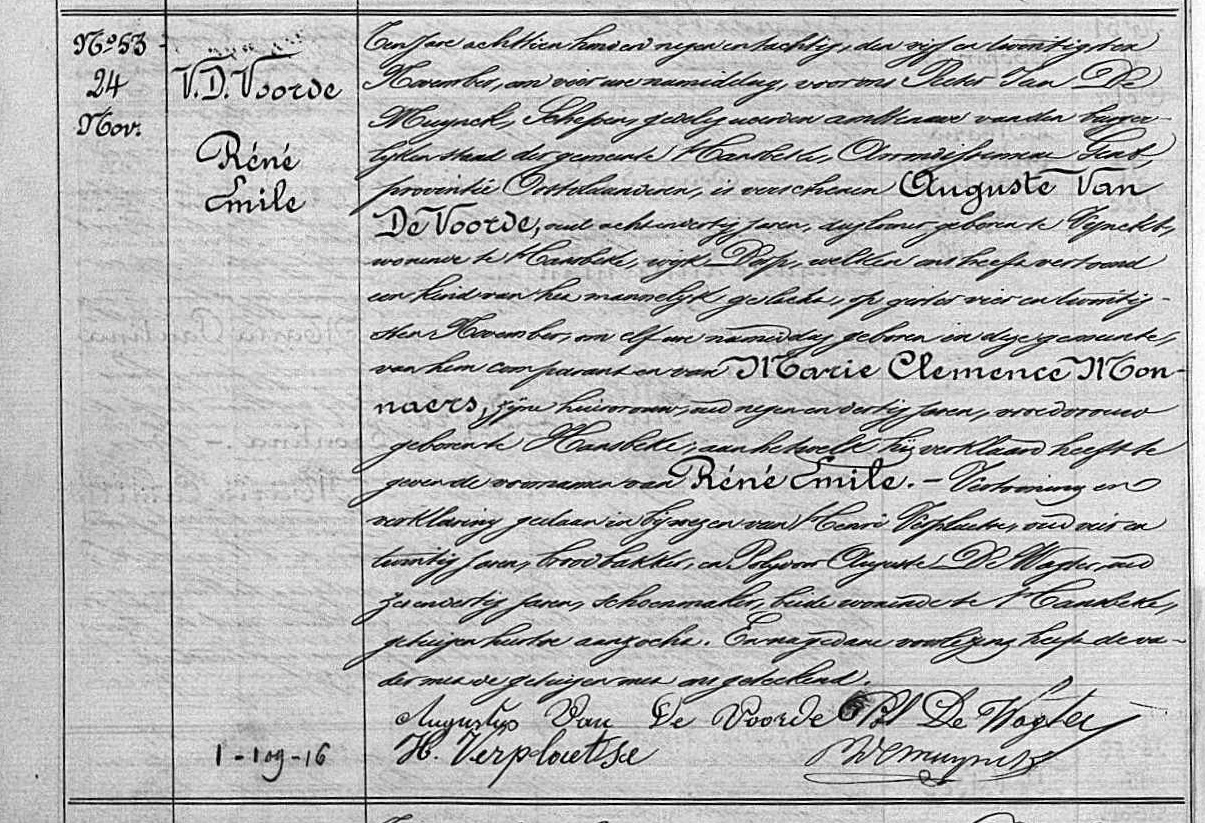 No 53
24
Nov.
V.D. Voorde
Réné
Emile
Ten Jare achttien honderd negen en tachtig, den vijf en twintigsten
November, om vier ure namiddag, voor ons Pieter Jan De
Muynck, Schepen, gedelegueerden ambtenaar van den burger-
lijken stand der gemeente Hansbeke, Arrondissement Gent,
provintie Oostvlaanderen, is verschenen Auguste Van
De Voorde, oud achtenvertig Jaren, geboren te Vynckt,
wonende te Hansbeke, wijk Dorp, welken ons heeft vertoond
een kind van het mannelijk geslacht, op gister vier en twintig-
sten November, om elf ure namiddag geboren in deze gemeente,
van hem comparant en van Marie Clemence Mon-
naers, zijne huisvrouw, oud negen en dertig Jaren, vroedvrouw
geboren te Hansbeke, aan hetwelk hij verklaard heeft te
geven de voornamen van Réné Emile. – Vertooning en
verklaring gedaan in bijwezen van Henri Verplaetse, oud en
twintig Jaren, broodbakker, en Polydoor Auguste De Wagter, oud
zesenvertig Jaren, schoenmaker, beide wonende te Hansbeke,
getuigen hiertoe aanzocht. En na gedane voorlezing heeft de va-
der met de getuigen met ons geteekend.
Augustus Van De Voorde Pol De Wagter
H. Verplaetse PDemuynck
1 - 109 - 16